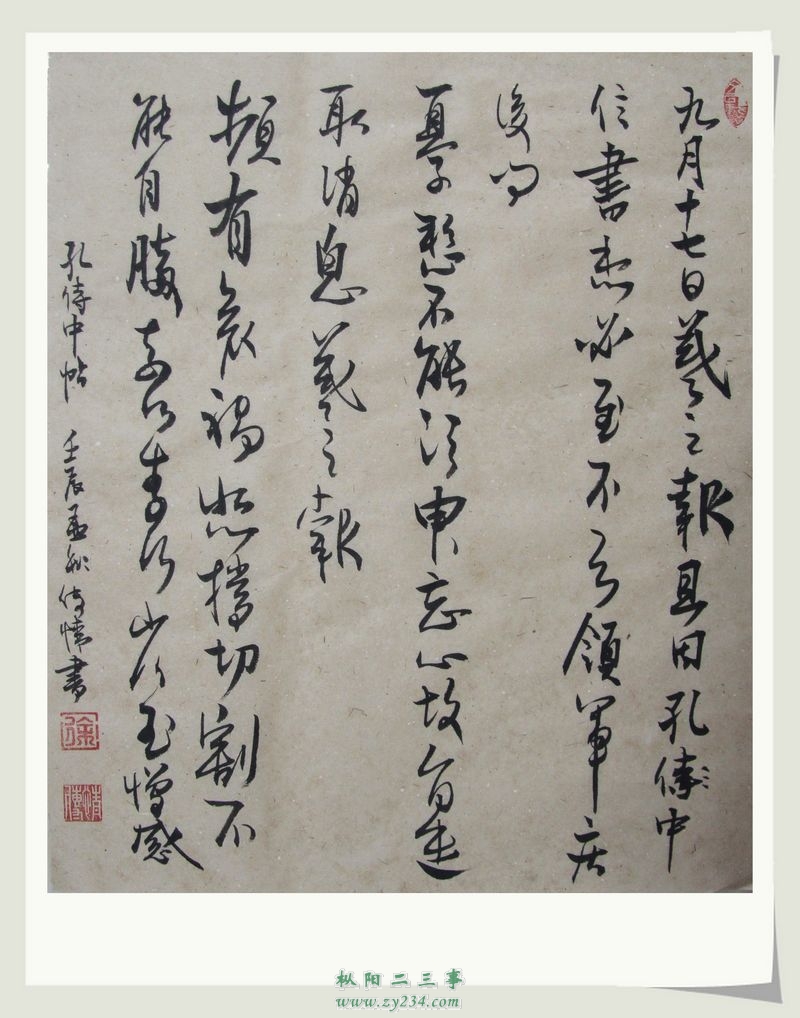 九月十七日羲之報且因孔侍中
信書想必至不知領軍疾
後問
憂懸不能須臾忘心故旨遣
取消息羲之報
頻有哀禍悲摧切割不
能自勝奈何奈何省慰增感
孔侍中帖 壬辰孟秋傳情書
徐
枞阳二三事
www.zy234.com